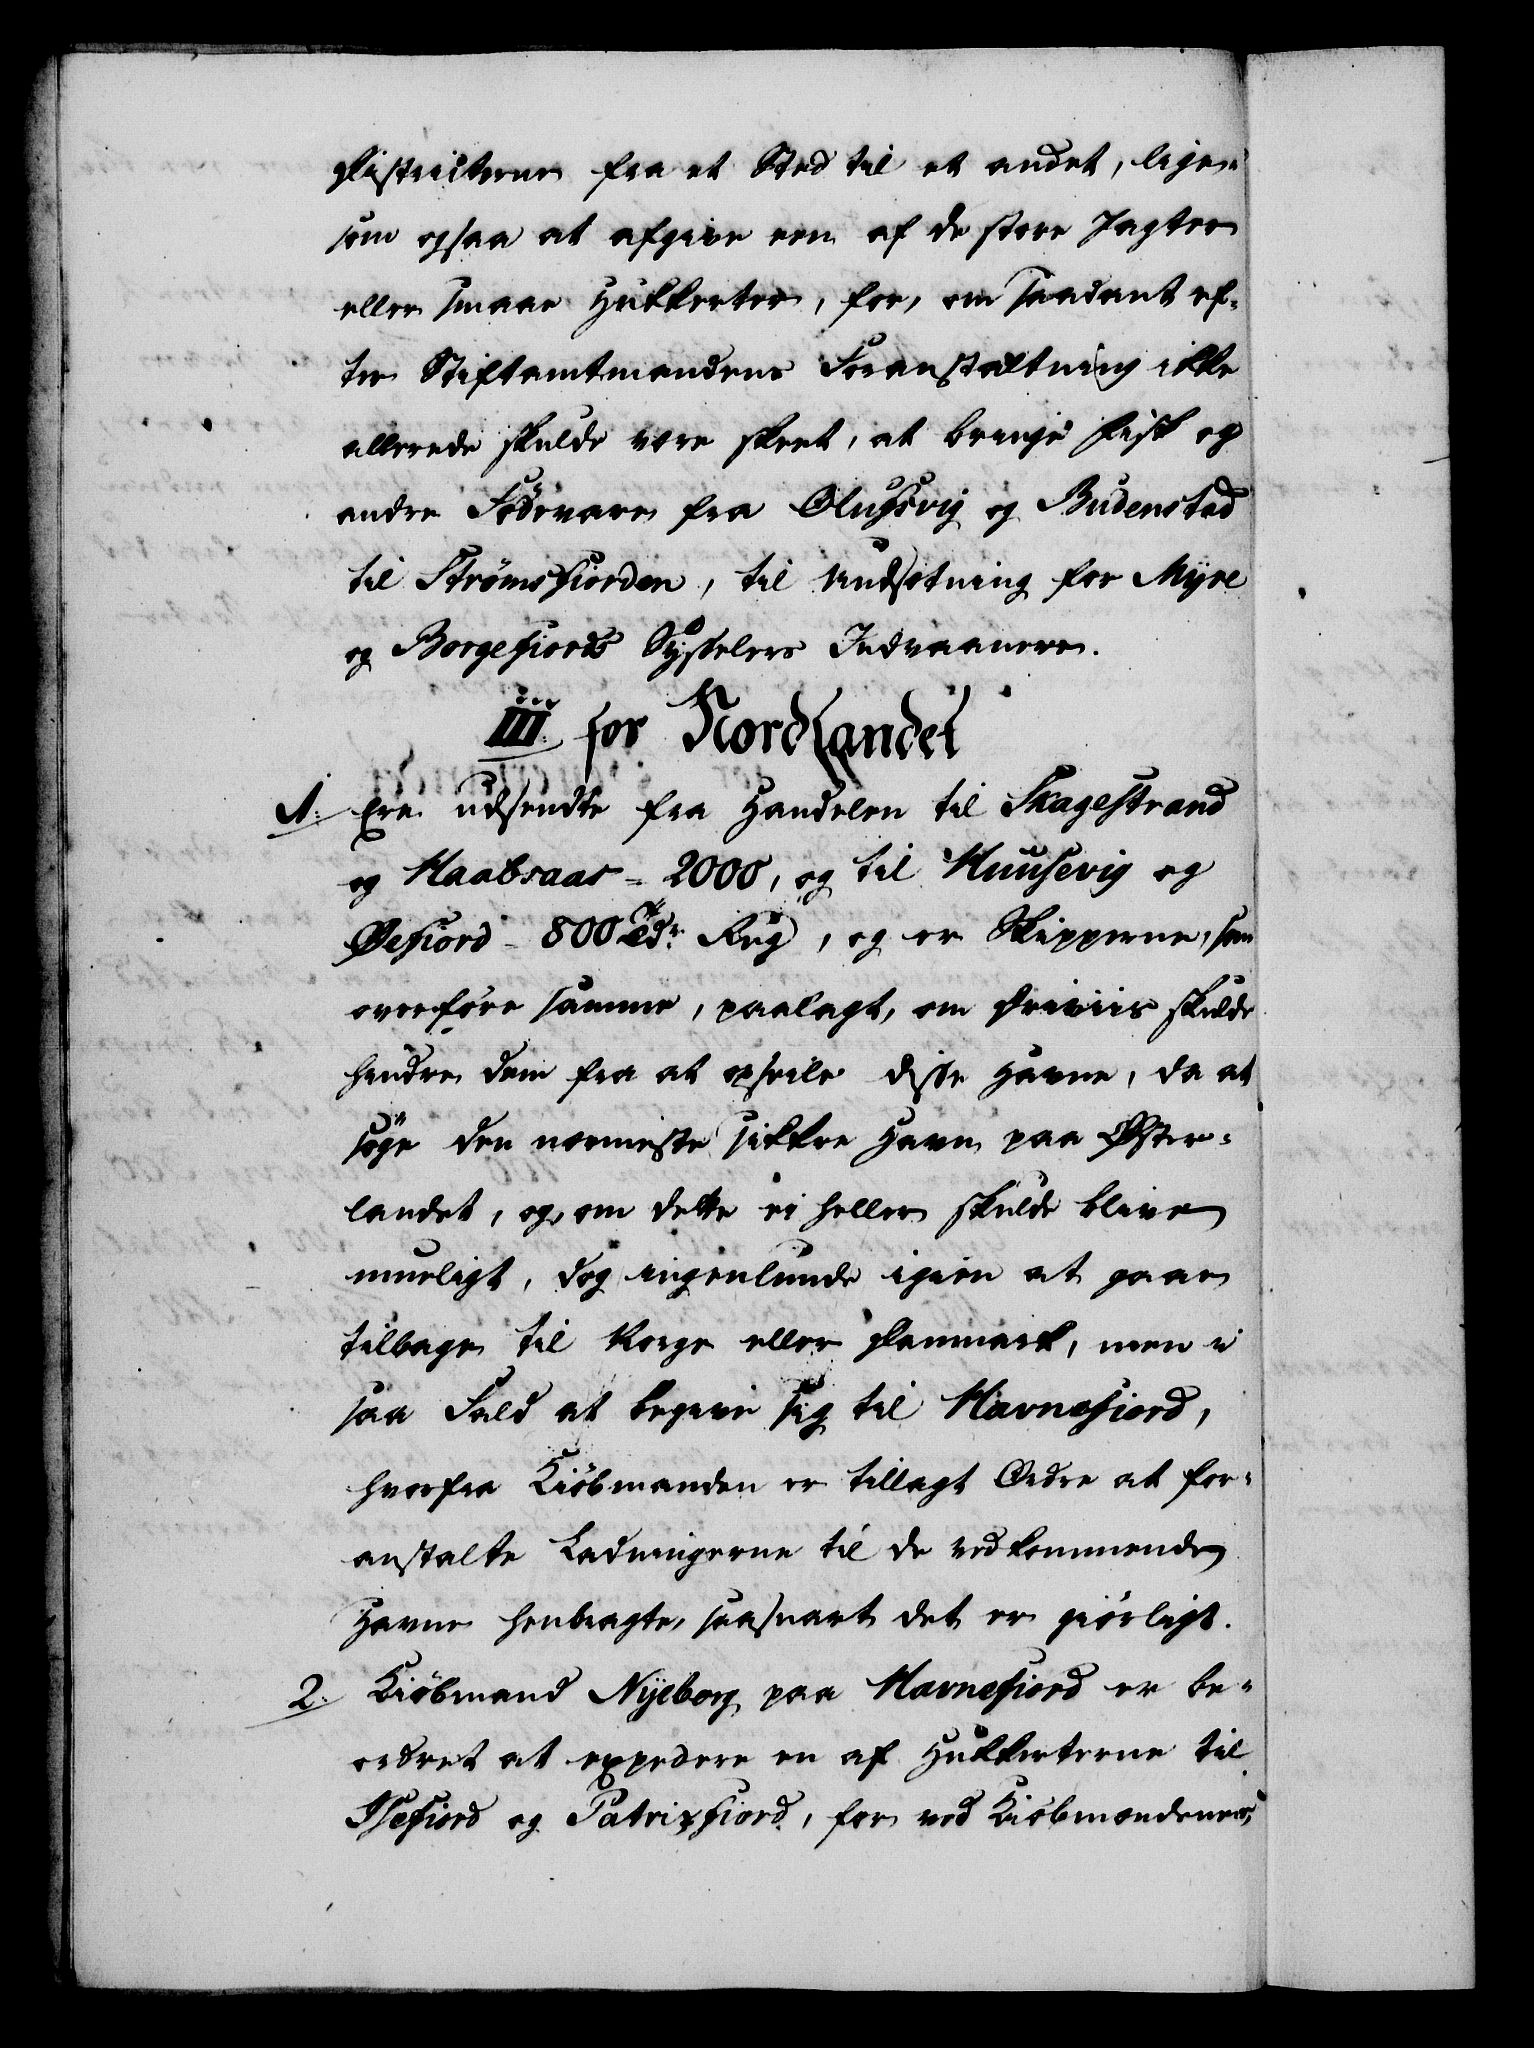 Districterne fra et Sted til et andet, lige¬
som ogsaa at afgive een af de store Jagter
eller smaae Hukkerter, for, om saadant ef¬
ter Stiftamtmandens Foranstaltning ikke
allerede skulde være skeet, at bringe Fisk og
andre Födevarer fra Olufsvig og Budenstad
til Strømsfiorden, til Undsætning for Myre
og Borgefiords Sysselers Indvaanere.
III for Nordlandet
1. Ere udsendte fra Handelen til Skagestrand
og Haabsaas = 2000, og til Huusevig og
Øefiord - 800 Tdr. Rug, og er Skipperne, som
overföre samme, paalagt, om Driviis skulde
hindre dem fra at opseile disse Havne, da at
söge den nærmeste sikkre Havn paa Øster¬
landet, og, om dette ei heller skulde blive
mueligt, dog ingenlunde igien at gaae
tilbage til Norge eller Danmark, men i
saa Fald at begive sig til Havnefiord,
hvorfra Kiöbmanden er tillagt Ordre at for¬
anstalte Ladningerne til de vedkommende
Havne henbragte, saasnart det er giörligt.
2. Kiöbmand Nyeborg paa Havnefiord er be¬
ordret at expedere en af Hukkerterne til
Isefiord og Patrixfiord, for ved Kiöbmændenes